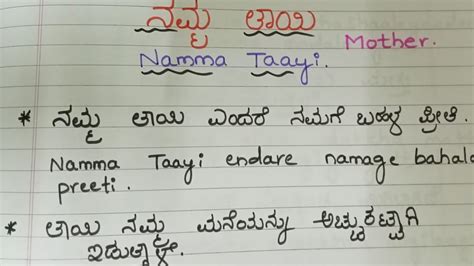 ನಮ್ಮ ತಾಯಿ
Mother.
Namma Taayi.
* ನಮ್ಮ ತಾಯಿ ಎಂದರೆ ನಮಗೆ ಬಹಳ ಪ್ರೀತಿ.
Namma Taayi endare namage bahala
preeti.
* ತಾಯಿ ನಮ್ಮ ಮನೆಯನ್ನು ಅಚ್ಚುಕಟ್ಟಾಗಿ
ಇಡುತ್ತಾಳೆ.